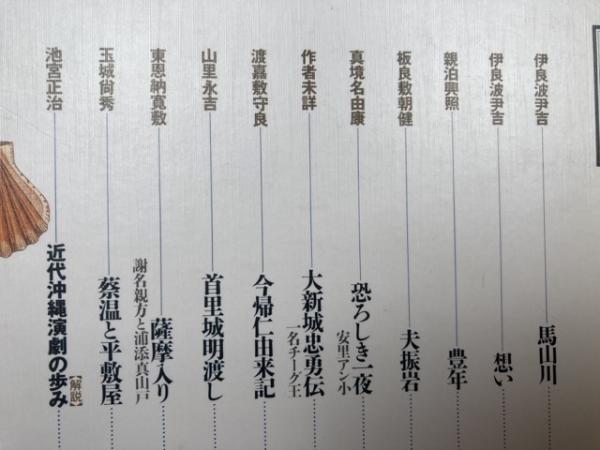 伊良波尹吉 馬山川
伊良波尹吉 想い
親泊興照 豊年
板良敷朝健 夫振岩
真境名由康 恐ろしき一夜
安里アン小
作者未詳 大新城忠勇伝
一名チーグ王
渡嘉敷守良 今帰仁由来記
山里永吉 首里城明渡し
東恩納寛敷 薩摩入り
謝名親方と浦添真山戸
玉城尙秀 蔡温と平敷屋
池宮正治 近代沖縄演劇の歩み【解説】